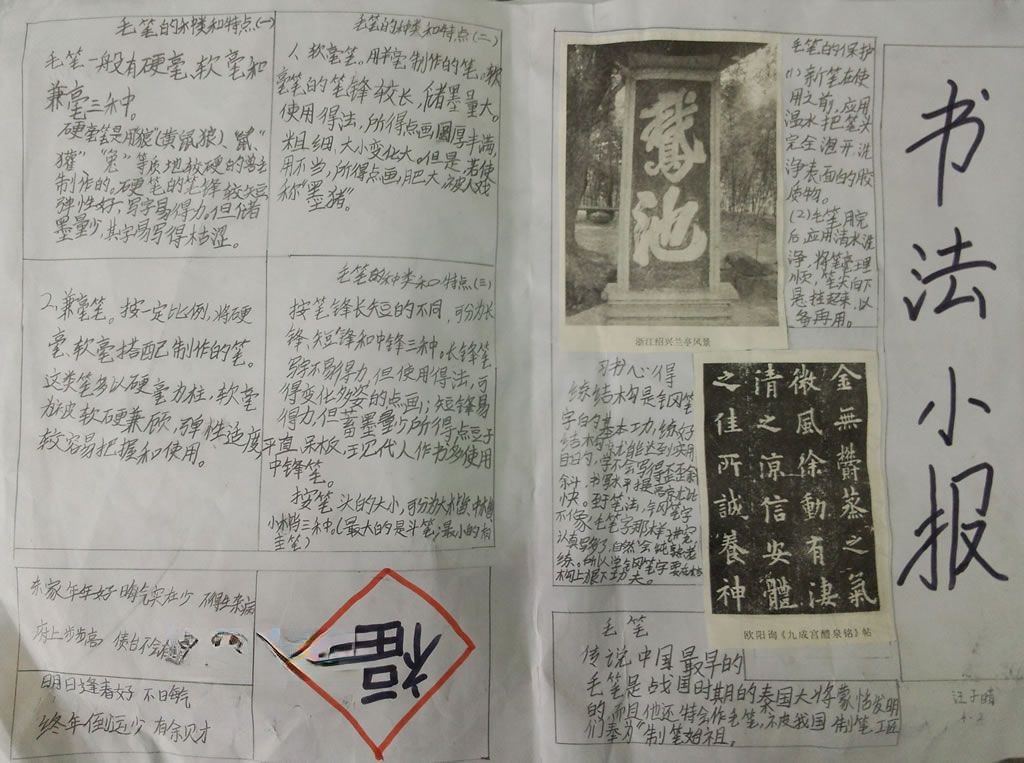 毛笔的种类和特点(一)
毛笔一般有硬毫、软毫和
兼毫三种。
硬毫笔是用狼"(黄鼠狼)、"鼠"
"獾""兔"等质地较硬的兽毛
制作的。硬笔的笔锋较短
弹性好,写字易得力。但储
墨量少,其字易写得枯涩。
毛笔的种类和特点(二)
1、软毫笔。用羊毫制作的笔。软
毫笔的笔锋较长,储墨量大。
使用得法,所得点画圆厚丰满,
粗细、大小变化大。但是,若使
用不当,所得点画,肥大
称"墨猪"。
2、兼毫笔。按一定比例,将硬
毫、软毫搭配制作的笔。
这类笔多以硬毫为柱,软毫
为皮,软硬兼顾,弹性适度
较容易把握和使用。
毛笔的种类和特点(三)
按笔锋长短的不同,可分为长
锋、短锋和中锋三种。长锋笔
写字不易得力,但使用得法,可
得变化多姿的点画;短锋易
得力,但蓄墨量少所得点
平直、呆板,现代人作书多使用
中锋笔。
按笔头的大小,可分为大楷、中楷
小楷三种。(最大的是斗笔;最小的有
圭笔)
东家年年好 晦气实在少 不得生杂病
府上步步高 使白不会
明日逢春好 不日晦气
终年倒运少 有余见才
福
鵞池
浙江绍兴兰亭风景
毛笔的保护
(1)新笔在使
用之前,应用
温水把笔头
完全泡开,洗
净表面的胶
质物。
(2)毛笔用完
后,应用清水洗
净,将笔毫理
顺,笔尖向下
悬挂起来,以
备再用。
习书心得
练结构是钢笔
字的基本功,练好
结构,才能达到实用
目的,字不会写得歪歪
斜斜,书写水平提高
快。至于笔法,钢笔字
不像毛笔字那样讲究,
认真写多了,自然会纯熟
练。所以学钢笔字要在
构上狠下功夫。
金無欝蒸之氣
微風徐動有淒
清之涼信安體
之佳所誠養神
欧阳询《九成宫醴泉铭》帖
毛笔
传说中国最早的
毛笔是战国时期的秦国大将蒙恬发明
的,而且他还特会作毛笔,不被我国制笔工匠
们奉为"制笔始祖。
书法小报
汪子晴